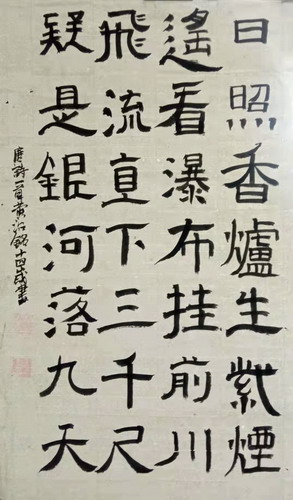 日照香爐生紫煙
遙看瀑布挂前川
飛流直下三千尺
疑是銀河落九天
唐詩一首黃江銘十四歲書